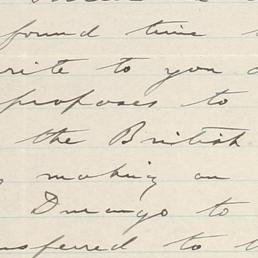 found time
rite to you
proposes to
the British
making an
Durango to
nsferred to